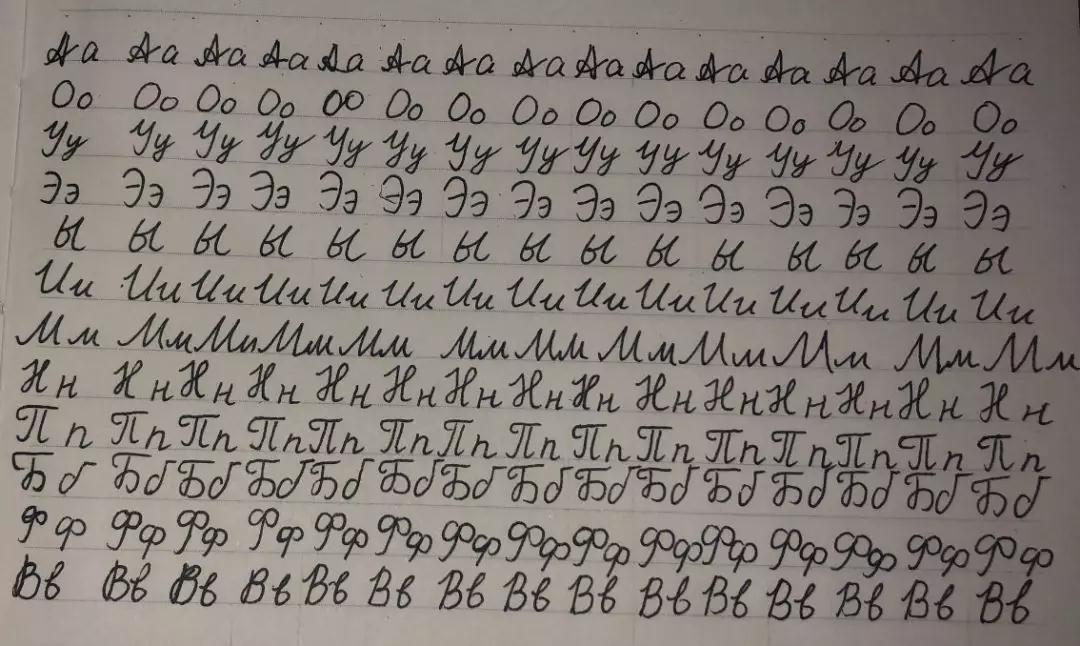 Аа Аа Аа Аа Аа Аа Аа Аа Аа Аа Аа Аа Аа Аа Аа
Оо Оо Оо Оо Оо Оо Оо Оо Оо Оо Оо Оо Оо Оо Оо
Уу Уу Уу Уу Уу Уу Уу Уу Уу Уу Уу Уу Уу Уу Уу
Ээ Ээ Ээ Ээ Ээ Ээ Ээ Ээ Ээ Ээ Ээ Ээ Ээ Ээ Ээ
ы ы ы ы ы ы ы ы ы ы ы ы ы ы ы
Ии Ии Ии Ии Ии Ии Ии Ии Ии Ии Ии Ии Ии Ии Ии
Мм Мм Мм Мм Мм Мм Мм Мм Мм Мм Мм Мм
Нн Нн Нн Нн Нн Нн Нн Нн Нн Нн Нн Нн Нн Нн Нн
Пп Пп Пп Пп Пп Пп Пп Пп Пп Пп Пп Пп Пп Пп Пп
Бб Бб Бб Бб Бб Бб Бб Бб Бб Бб Бб Бб Бб Бб Бб
Фф Фф Фф Фф Фф Фф Фф Фф Фф Фф Фф Фф Фф Фф Фф
Вв Вв Вв Вв Вв Вв Вв Вв Вв Вв Вв Вв Вв Вв Вв